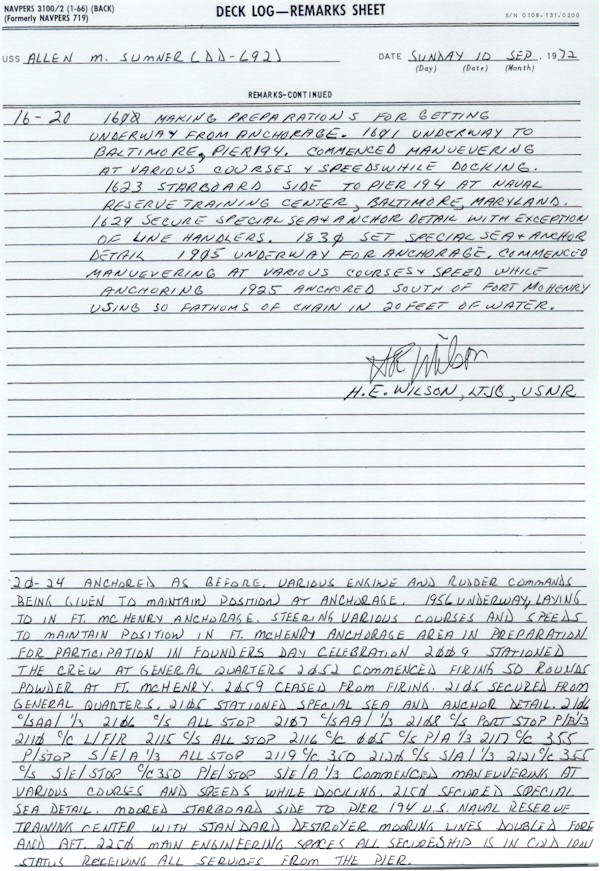 NAVPERS 3100/2 (1-66) (BACK)
(Formerly NAVPERS 719)
DECK LOG—REMARKS SHEET
S/N 0108-131-0200
USS ALLEN M. SUMNER (DD-692) DATE SUNDAY 10 SEP, 1972
(Day) (Date) (Month)
REMARKS—CONTINUED
16-20 16Ø8 MAKING PREPARATIONS FOR GETTING
UNDERWAY FROM ANCHORAGE. 16Ø1 UNDERWAY TO
BALTIMORE, PIER 194. COMMENCED MANUEVERING
AT VARIOUS COURSES & SPEEDSWHILE DOCKING.
1623 STARBOARD SIDE TO PIER 194 AT NAVAL
RESERVE TRAINING CENTER, BALTIMORE, MARYLAND.
1629 SECURE SPECIAL SEA & ANCHOR DETAIL WITH EXCEPTION
OF LINE HANDLERS. 183Ø SET SPECIAL SEA & ANCHOR
DETAIL 19Ø5 UNDERWAY FOR ANCHORAGE. COMMENCED
MANUEVERING AT VARIOUS COURSES & SPEED WHILE
ANCHORING 1925 ANCHORED SOUTH OF FORT McHENRY
USING 30 FATHOMS OF CHAIN IN 20 FEET OF WATER.
HE Wilson
H.E. WILSON, LTJG, USNR
2Ø-24 ANCHORED AS BEFORE. VARIOUS ENGINE AND RUDDER COMMANDS
BEING GIVEN TO MAINTAIN POSITION AT ANCHORAGE. 1956 UNDERWAY, LAYING
TO IN FT. MC HENRY ANCHORAGE. STEERING VARIOUS COURSES AND SPEEDS
TO MAINTAIN POSITION IN FT. MCHENRY ANCHORAGE AREA IN PREPARATION
FOR PARTICIPATION IN FOUNDERS DAY CELEBRATION 2ØØ9 STATIONED
THE CREW AT GENERAL QUARTERS 2Ø52 COMMENCED FIRING 50 ROUNDS
POWDER AT FT. MCHENRY. 2Ø59 CEASED FROM FIRING. 21Ø5 SECURED FROM
GENERAL QUARTERS. 21Ø5 STATIONED SPECIAL SEA AND ANCHOR DETAIL. 21Ø6
C/S AA/ 1/3 21Ø6 C/S ALL STOP 21Ø7 C/S AA/ 1/3 21Ø8 C/S PORT STOP P/B 1/3
211Ø C/C L/F/R 2115 C/S ALL STOP 2116 C/C ØØ5 C/S P/A 1/3 2117 C/C 355
P/STOP S/E/A 1/3 ALL STOP 2119 C/C 350 212Ø C/S S/A/ 1/3 2121 C/C 355
C/S S/E/STOP C/C 350 P/E/STOP S/E/A 1/3 COMMENCED MANEUVERING AT
VARIOUS COURSES AND SPEEDS WHILE DOCKING. 215Ø SECURED SPECIAL
SEA DETAIL. MOORED STARBOARD SIDE TO PIER 194 U.S. NAVAL RESERVE
TRAINING CENTER WITH STANDARD DESTROYER MOORING LINES DOUBLED FORE
AND AFT. 225Ø MAIN ENGINEERING SPACES ALL SECURE SHIP IS IN COLD IRON
STATUS RECEIVING ALL SERVICES FROM THE PIER.